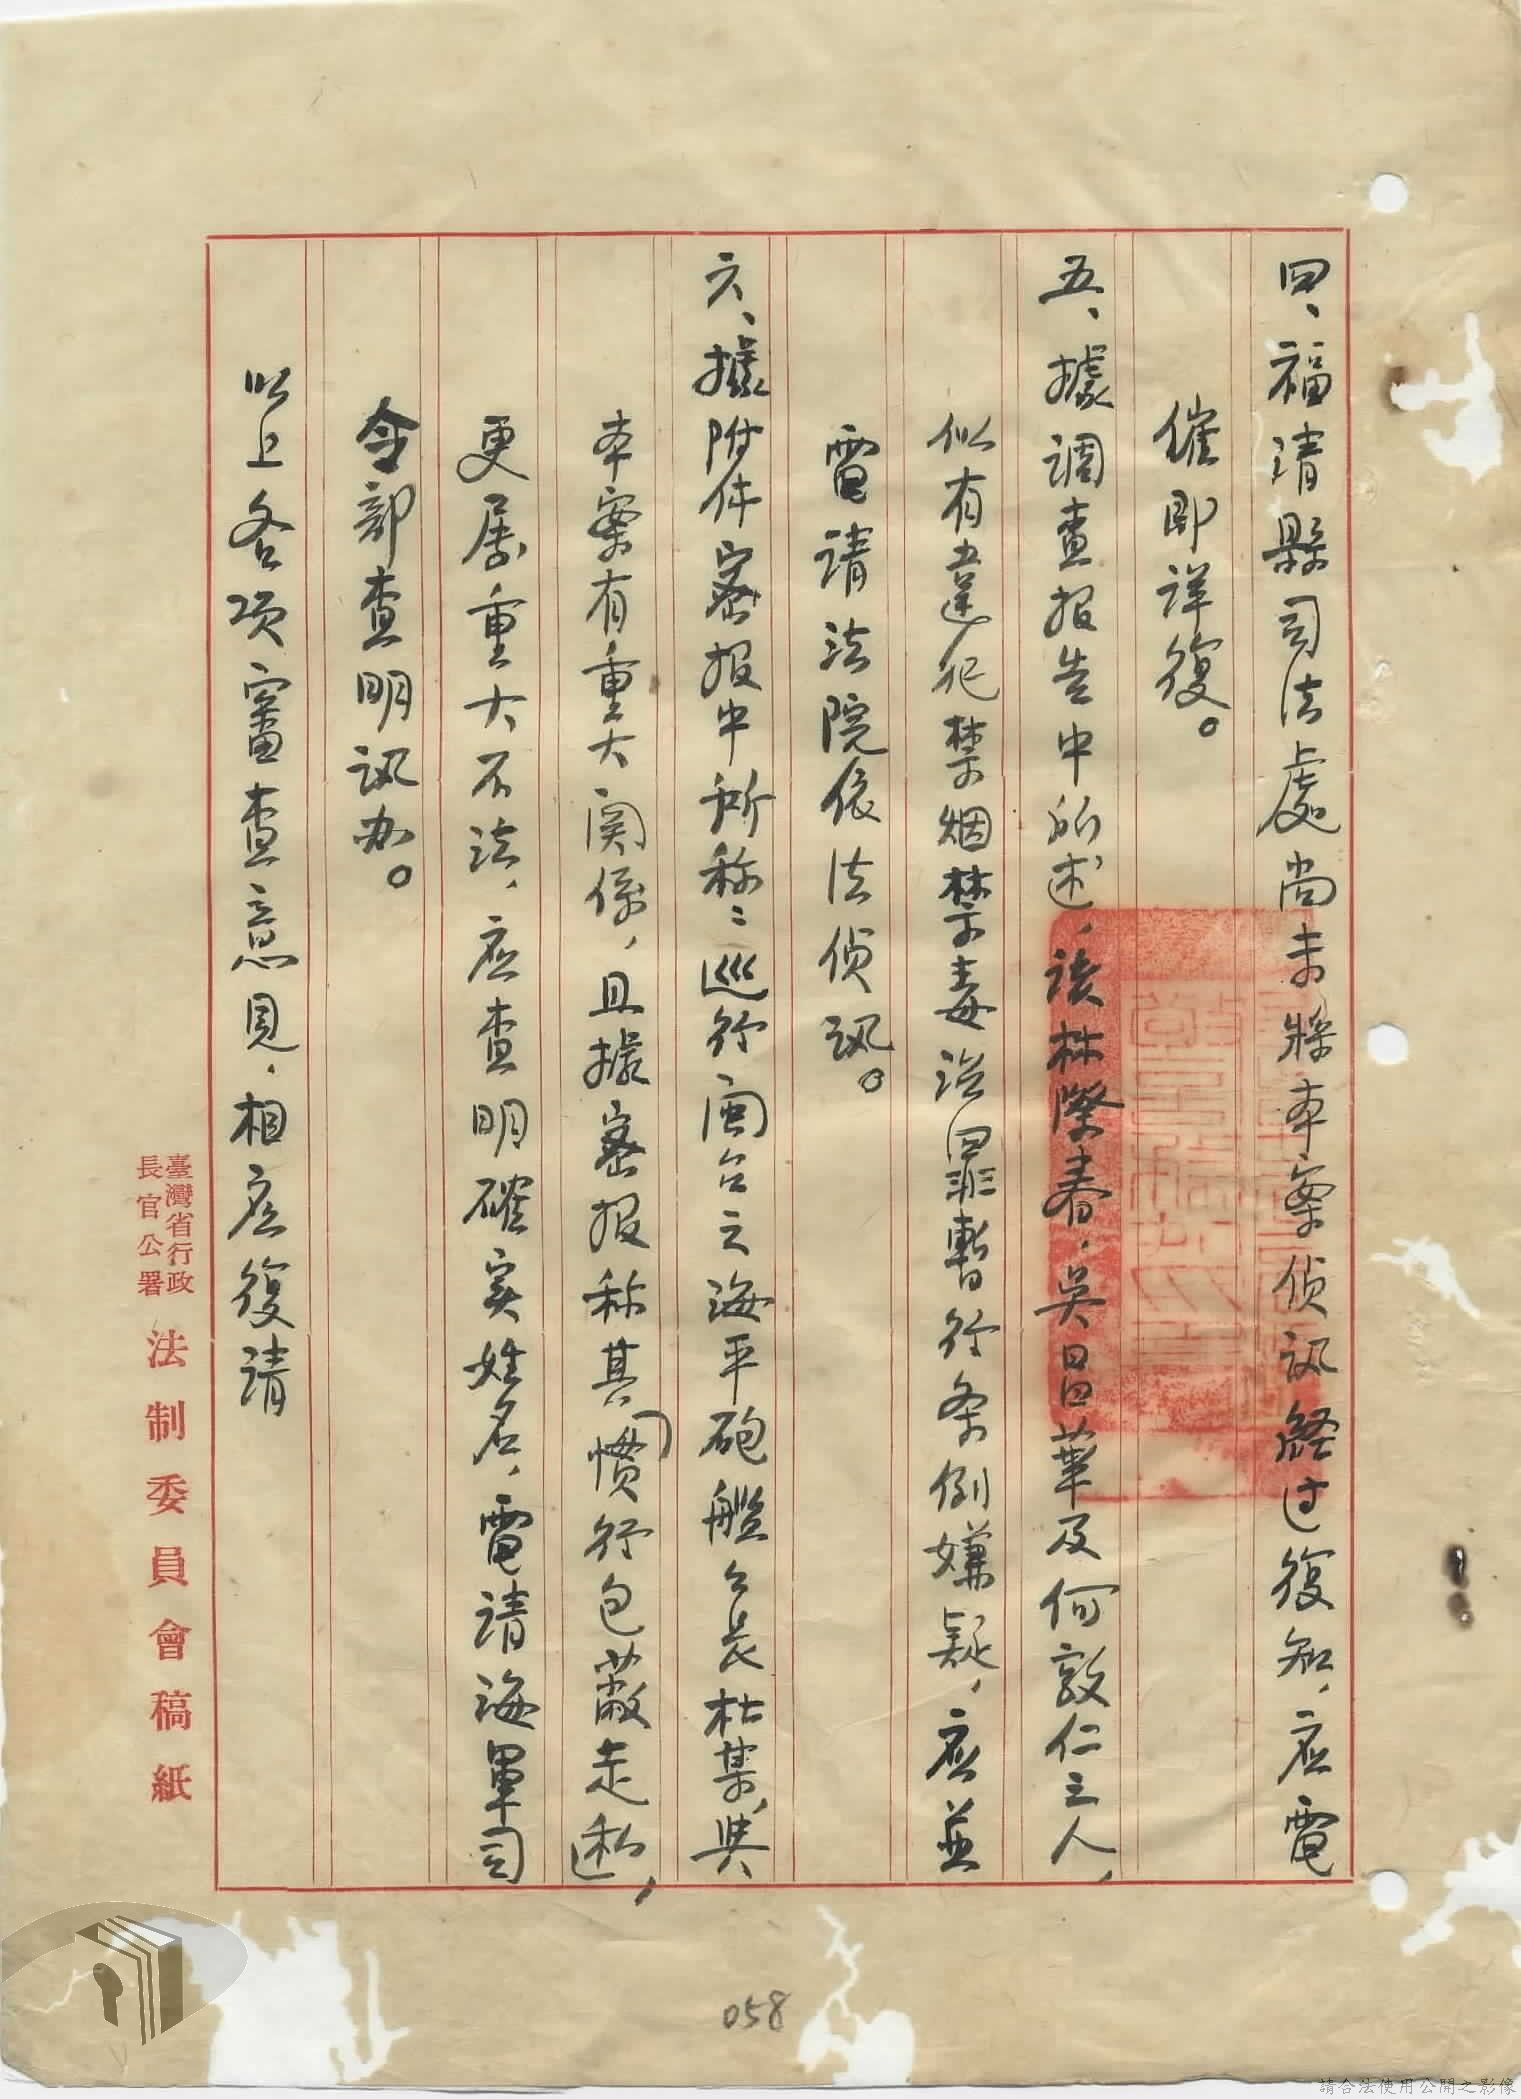 四、福清縣司法處尚未將本案侦訊経过復知，应電
催即详復。
五、據调查报告中所述，该林際春，吳昌華及何敦仁三人，
似有違犯禁烟禁毒治罪暫行条例嫌疑，应並
電請法院依法侦訊。
六、據附件密报中所称：巡行闽台之海平砲艦艦長杜某，與
本案有重大関係，且據密报称其慣行包蔽走私，
更属重大不法，应查明確实姓名，電請海軍司
令部查明訊办。
以上各项審查意見，相应復請
臺灣省行政長官公署 法制委員會稿紙
058
請合法使用公開之影像